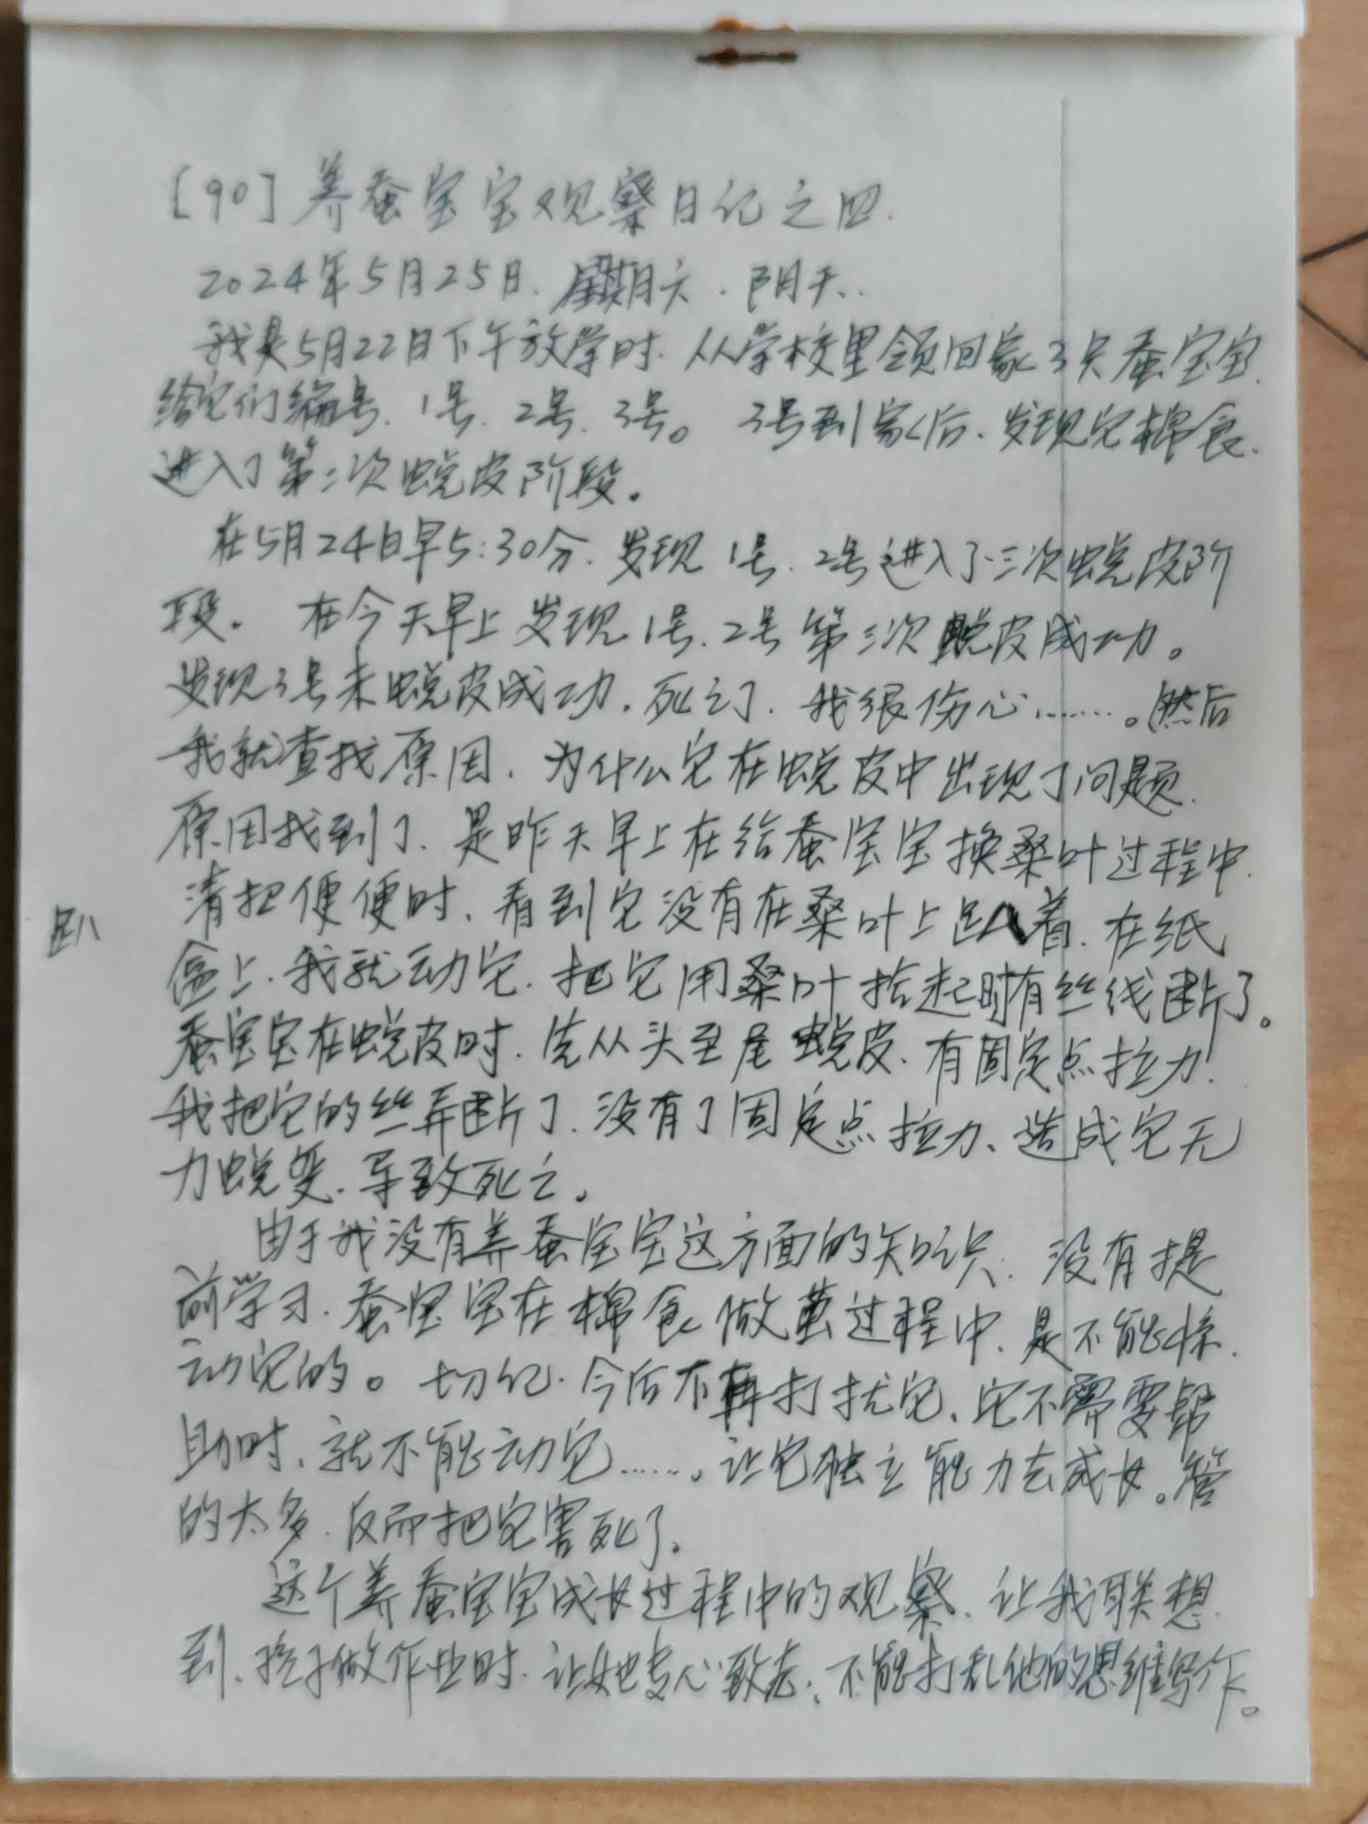 [90] 养蚕宝宝观察日记之四.
2024年5月25日. 星期六. 阴天.
我是5月22日下午放学时. 从学校里领回家3只蚕宝宝.
给它们编号. 1号. 2号. 3号。 3号到家后. 发现它棉食.
进入了第二次蜕皮阶段。
在5月24日早5:30分. 发现1号. 2号进入了三次蜕皮阶
段。 在今天早上发现1号. 2号第三次蜕皮成功。
发现3号未蜕皮成功. 死亡了. 我很伤心……。然后
我就查找原因. 为什么它在蜕皮中出现了问题.
原因找到了. 是昨天早上在给蚕宝宝换桑叶过程中.
清把便便时. 看到它没有在桑叶上趴着. 在纸
趴
盒上. 我就动它. 把它用桑叶拾起时有丝线断了。
蚕宝宝在蜕皮时. 先从头至尾蜕皮. 有固定点拉力.
我把它的丝弄断了. 没有了固定点拉力、造成它无
力蜕变. 导致死亡。
由于我没有养蚕宝宝这方面的知识. 没有提
前学习. 蚕宝宝在棉食做茧过程中. 是不能惊.
动它的。 切记. 今后不再打扰它、它不需要帮
助时、就不能动它……. 让它独立能力去成长。管
的太多. 反而把它害死了.
这个养蚕宝宝成长过程中的观察. 让我联想
到、孩子做作业时. 让她专心致志、不能打乱他的思维写作。